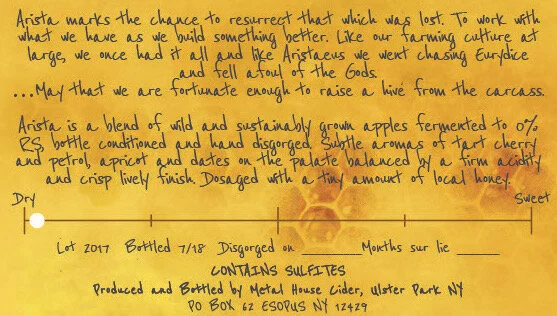 Arista marks the chance to resurrect that which was lost. To work with
what we have as we build something better. Like our farming culture at
large, we once had it all and like Aristaeus we went chasing Eurydice
and fell afoul of the Gods.
...May that we are fortunate enough to raise a hive from the carcass.
Arista is a blend of wild and sustainably grown apples fermented to 0%
RS, bottle conditioned and hand disgorged. Subtle aromas of tart cherry
and petrol, apricot and dates on the palate balanced by a firm acidity
and crisp lively finish. Dosaged with a tiny amount of local honey.
Dry Sweet
Lot 2017 Bottled 7/18 Disgorged on ________ Months sur lie ______
CONTAINS SULFITES
Produced and Bottled by Metal House Cider, Ulster Park NY
PO BOX 62 ESOPUS NY 12429